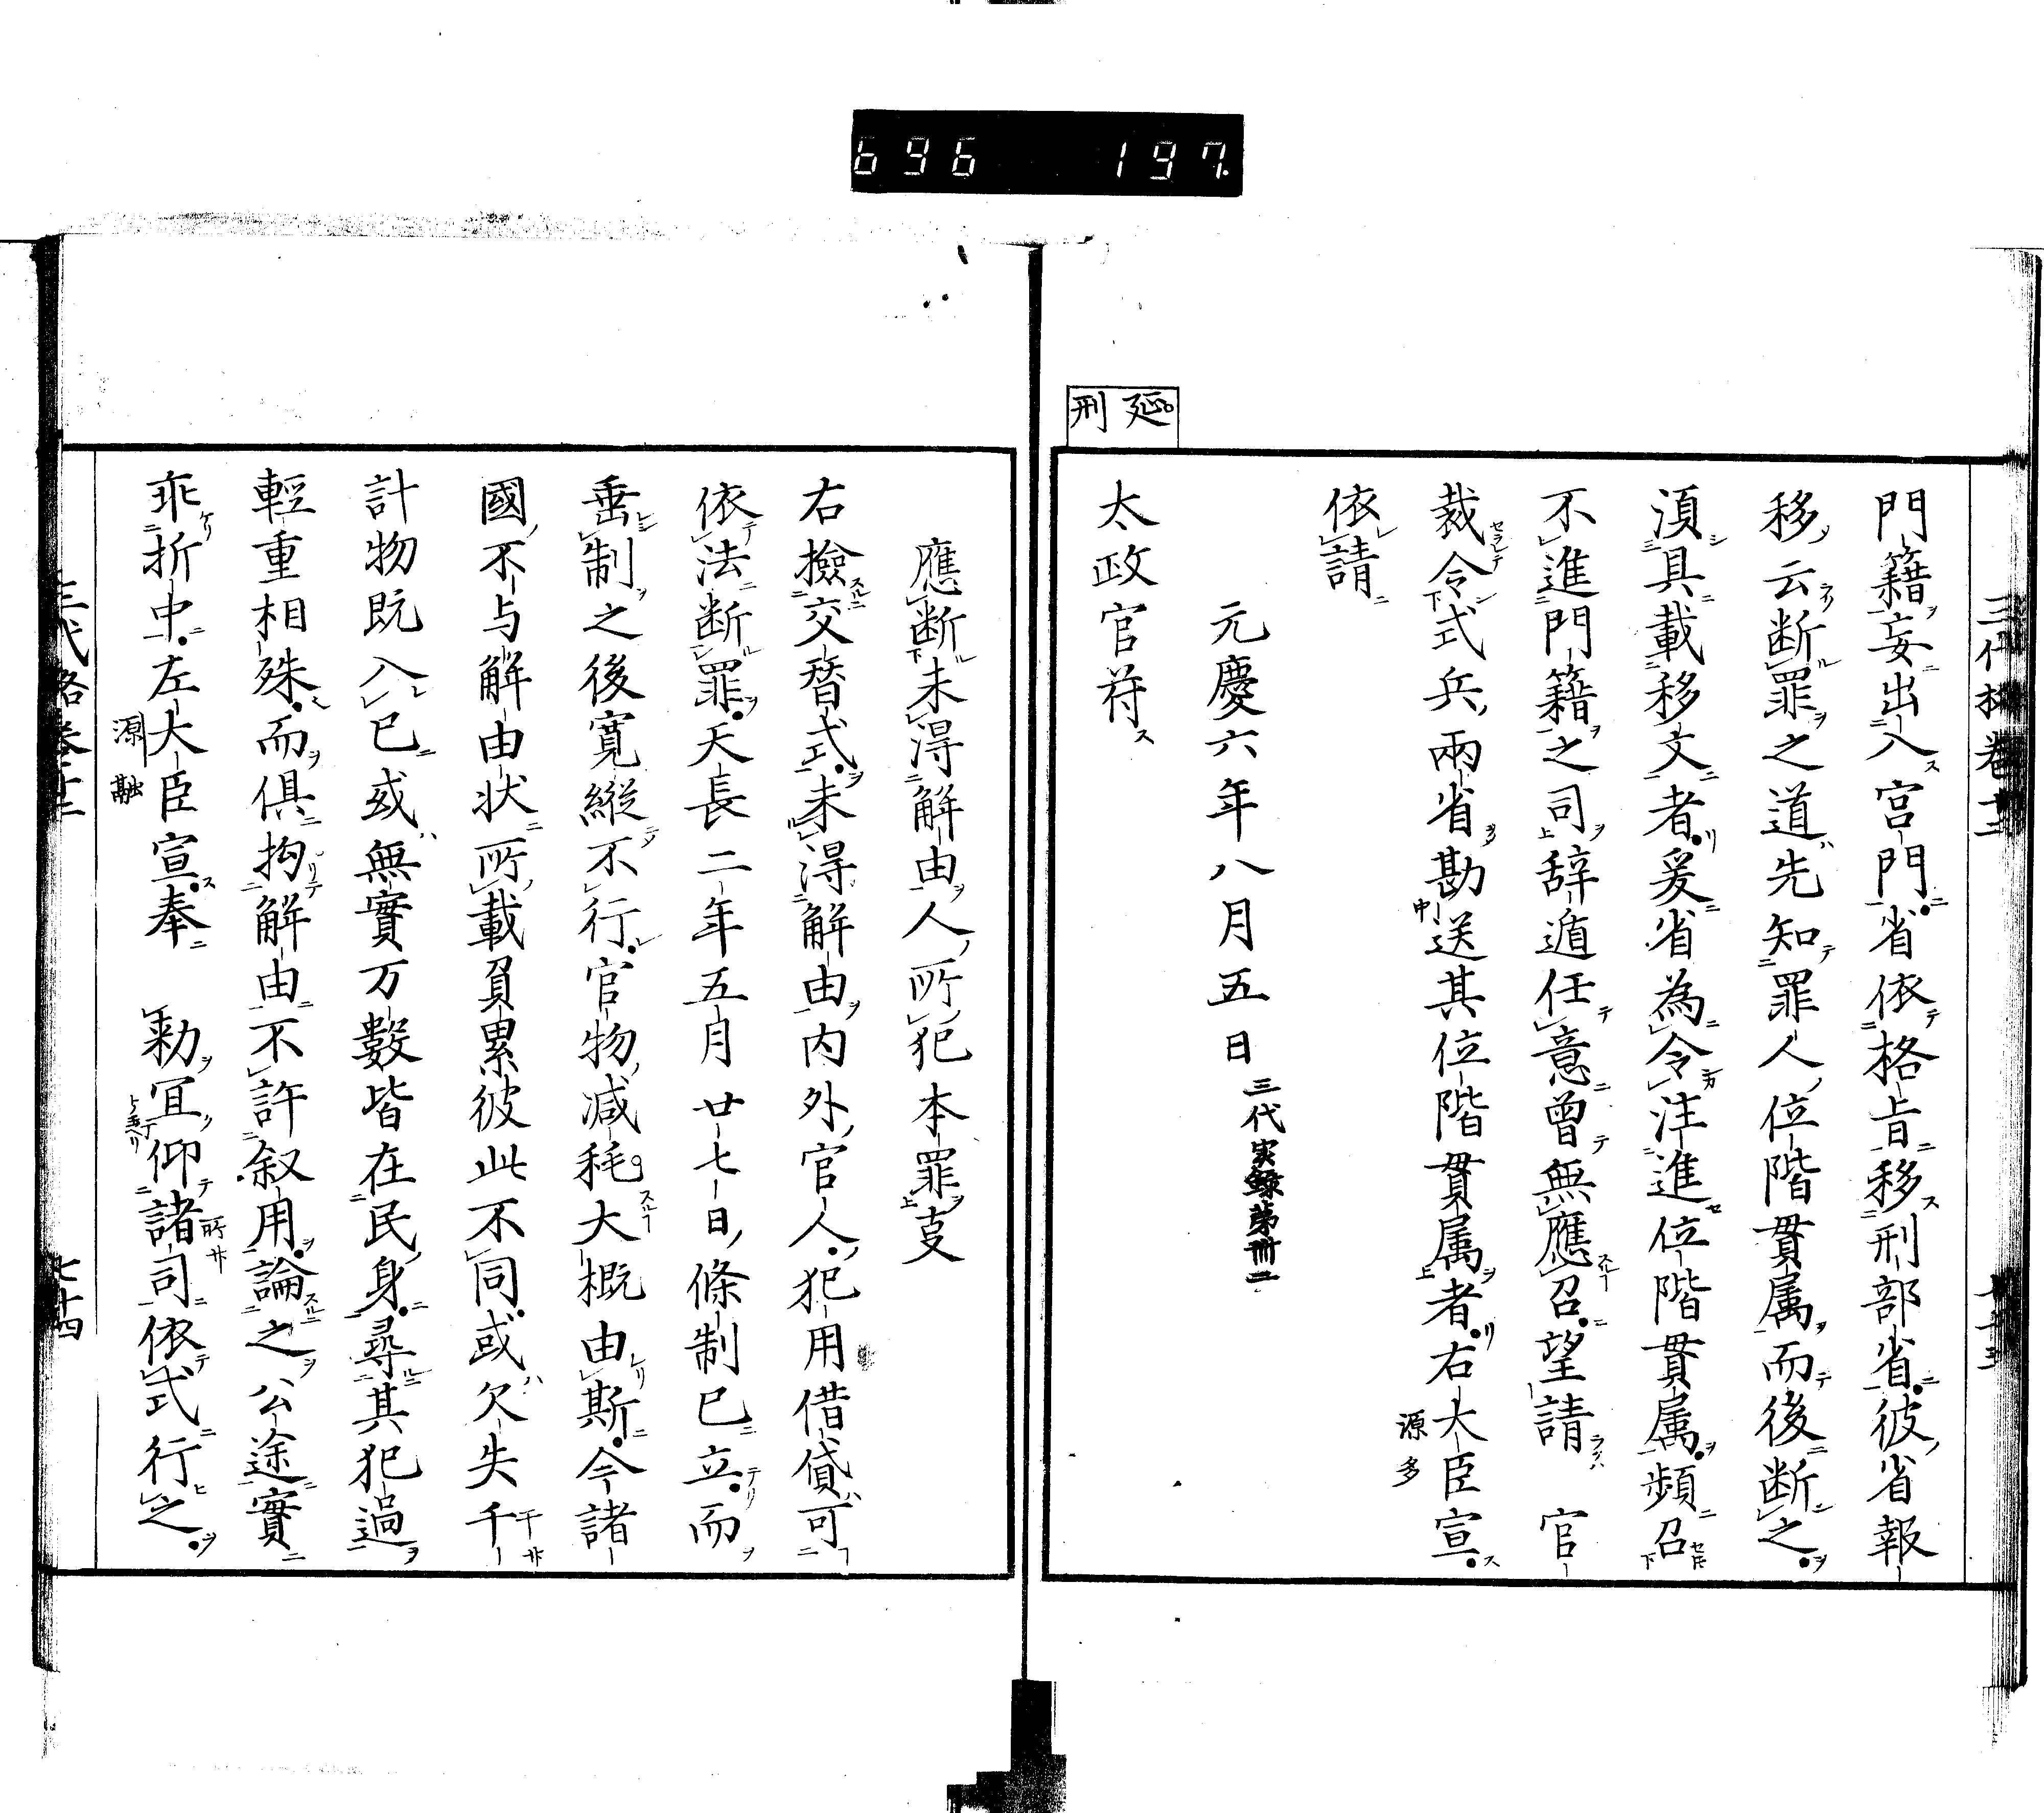 696 197
延 刑
門籍妄出入宮門省依格旨移刑部省彼省報
移云断罪之道先知罪人位階貫属而後断之
湏具載移文者爰省為令注進位階貫属頻召
不進門籍之司辞遁任意曾無應召望請 官
裁令式兵兩省勘送其位階貫属者右大臣宣
源多
依請
元慶六年八月五日 三代実録第卌二
太政官符
應断未淂解由人所犯本罪㕝
右撿交替式未淂解由内外官人犯用借貸可
依法断罪天長二年五月廿七日條制已立而
垂制之後寛縦不行官物减耗大概由斯今諸
國不与解由状所載負累彼此不同或欠失千
計物既入已或無實万數皆在民身尋其犯過
輕重相殊而俱拘解由不許叙用論之公途實
乖折中左大臣宣奉 勑冝仰諸司依式行之
源融
三代格卷十二 七十四